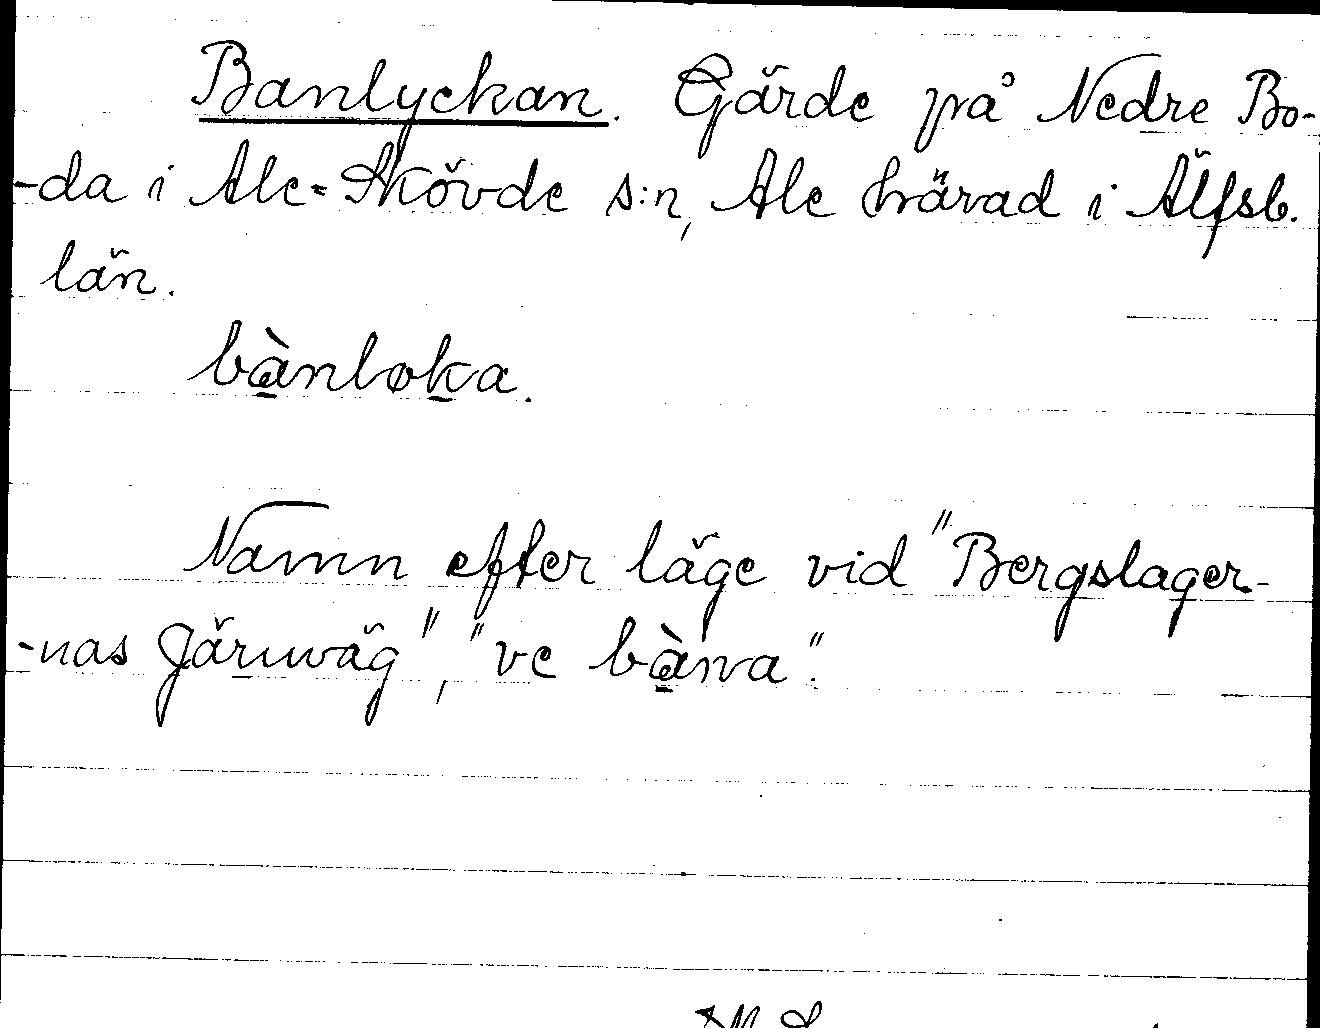 Banlyckan. Gärde på Nedre Bo-
-da i Ale-Skövde s:n, Ale härad i Älfsb.
län.
bànløka.
Namn efter läge vid "Bergslager-
-nas Järnväg", "ve bàna".